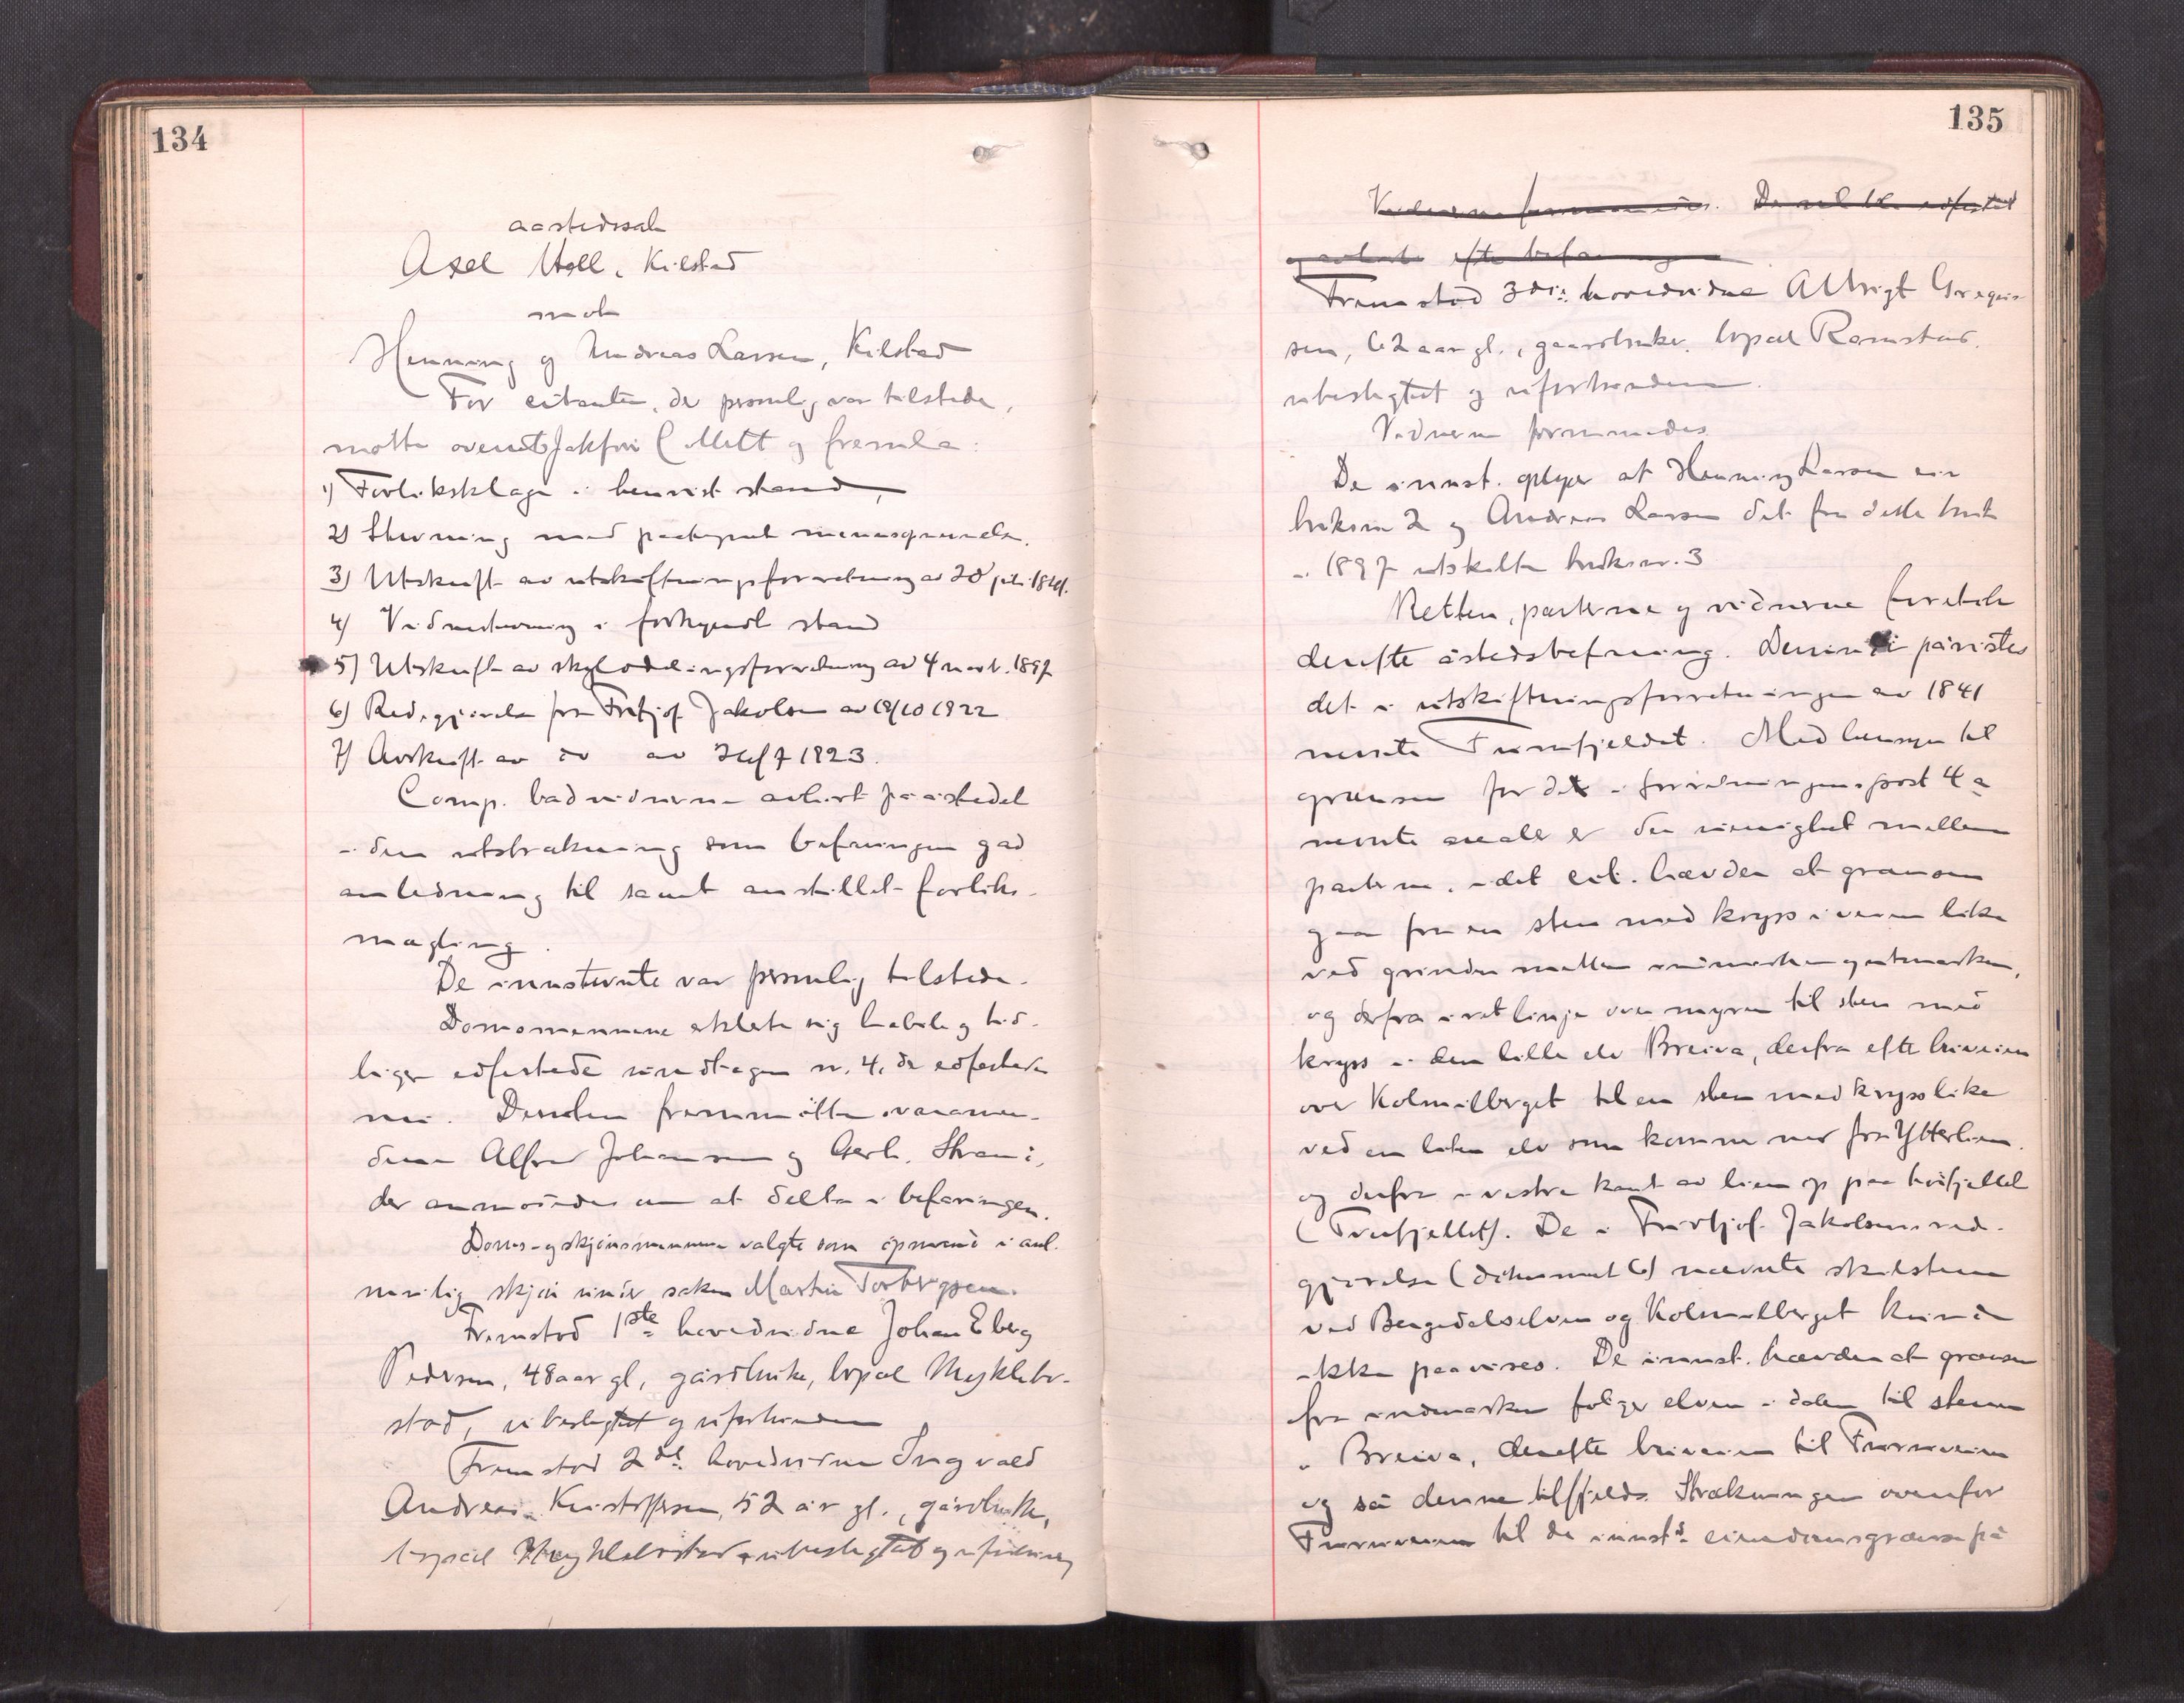 134
aastedssak
Axel Moll, Kilstad
mot
Henning og Andreas Larsen, Kilstad
For citanten, der personlig var tilstede,
møtte overretssakfører C. Mett og fremla:
1) Forliksklage i henvist stand,
2) Stevning med paategnet
3) Utskrift av utskiftningsforretning av 28 juli 1841.
4) Vidnestevning i forkyndt stand
5) Utskrift av skylddelingsforretning av 4 novb. 1897
6) Redegjørelse fra Fritjof Jakobsen av 19/10 1922
7) Avskrift av do av 1923.
Comp. bad vidnerne avhørt paa åstedet
i den utstrækning som befaringen gad
anledning til samt anstillet forliks-
mægling.
De innstevnte var personlig tilstede.
Domsmennene erklærte sig habile og tid-
ligere edfestede undtagen nr. 4, der edfestedes
nu. Desuten fremmøtte varamen-
dene Alfred Johansen og Gerh. Strand,
der anmodedes om at delta i befaringen.
Doms- og skjønsmennene valgte som opmand i anl.
mulig skjøn under saken Martin Torbergsen.
Fremstod 1ste hovedvidne Johan Eberg
Pedersen, 48 aar gl, gårdbruker, bopæl Myklebo-
stad, ubeslegtet og uforbunden
Fremstod 2det hovedvidne Ingvald
Andreas Kristoffersen, 52 år gl., gårdbruker,
bopæl Myklebostad, ubeslegtet og uforbunden
135
Vidnerne formanedes. De vil bli edfestet
og avhørt efter befaringen
Fremstod 3die hovedvidne Albrigt Gregus-
sen, 62 aar gl., gaardbruker, bopæl Ramstad,
ubeslegtet og uforbunden.
Vidnerne formanedes
De innst. oplyser at Henning Larsen eier
bruksnr 2 og Andreas Larsen det fra dette bruk
i 1897 utskilte bruksnr. 3
Retten, parterne og vidnerne foretok
derefter åstedsbefaring. Derunder påvistes
det i utskiftningsforretningen av 1841
nevnte Furufjeldet. Med hensyn til
grænsen for det i forretningens post 4 a
nevnte areale er der uenighet mellem
parterne, idet cit. hævder at grænsen
gaar fra en sten med kryss i veien like
ved grinden mellem indmarken og utmarken,
og derfra i ret linje over myren til sten med
kryss i den lille elv Breiva, derfra efter
over Kolmilberget til en sten med kryss like
ved en liten elv som kommer ned fra Ytterlien
og derfra i vestre kant av lien op paa høifjellet
(Furufjellet). De i Fritjof Jakobsens rede-
gjørelse (dokument 6) nævnte skilstene
ved Bergedalselven og Kolmilberget kunde
ikke paavises. De innst. hævder at grænsen
fra indmarken følger elven i dalen til stenen
i Breiva, derefter til Furuveien
og så denne tilfjelds. Strækningen ovenfor
Furuveien til de innst.s eiendomsgrænse på